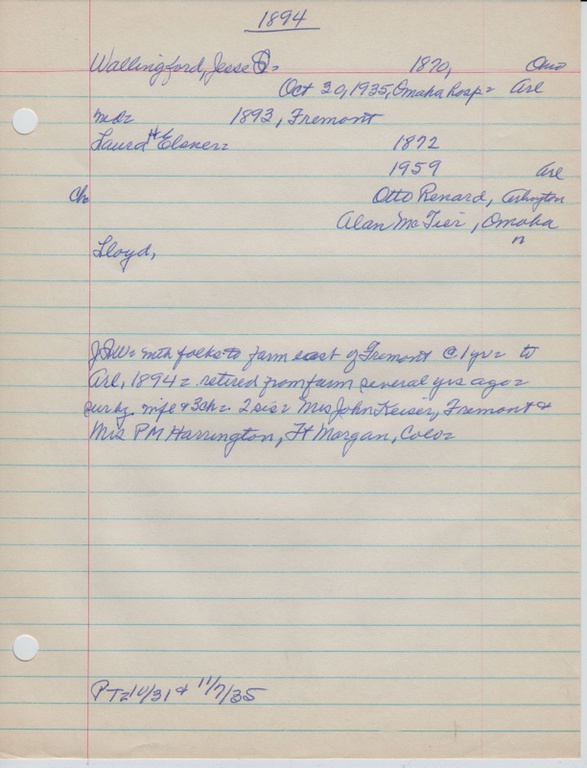 1894
Wallingford, Jesse = 1870,
Oct 30, 1935, Omaha Hosp = Arl
md = 1893, Fremont
Laura H Elsner = 1872
1959 Arl
Ch Otto Renard, Arlington
Alan McTier, Omaha
n
Lloyd,
JW = folks to farm east of Fremont C. 1 yr = to
Arl, 1894 = retired from farm several yrs ago =
surv by. wife & 3 ch = 2 sis = Mrs John Keiser, Fremont &
Mrs P M Harrington, Ft Morgan, Colo =
PT = 10/31 & 11/7/35